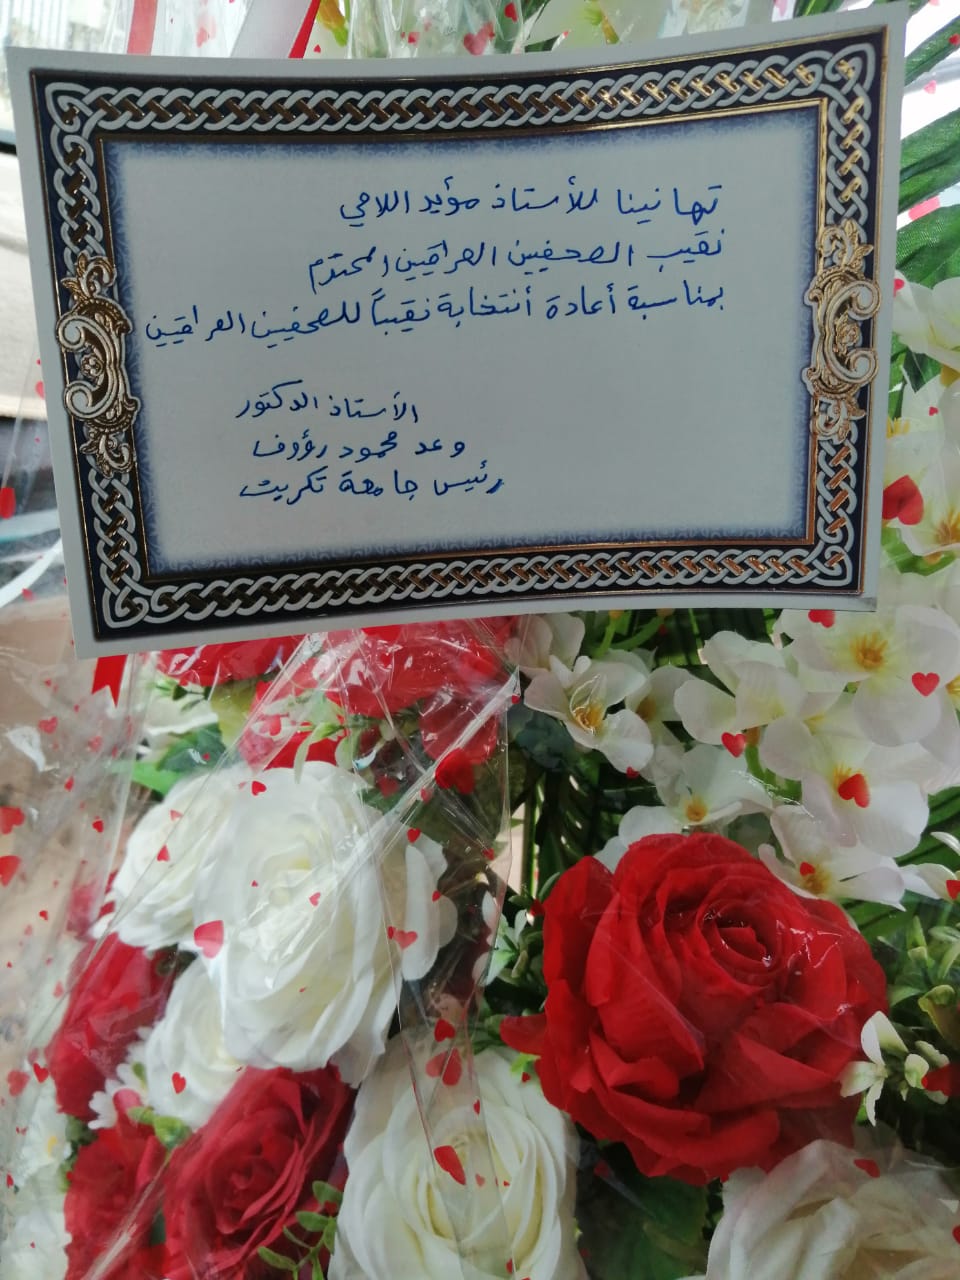 تهانينا للأستاذ مؤيد اللامي
نقيب الصحفيين العراقيين المحترم
بمناسبة أعادة أنتخابة نقيباً للصحفيين العراقيين
الأستاذ الدكتور
وعد محمود رؤوف
رئيس جامعة تكريت